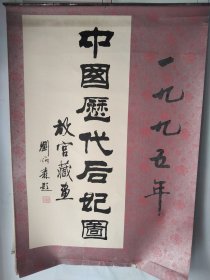 一九九五年
中國歷代后妃圖
故宫藏画
劉炳森題